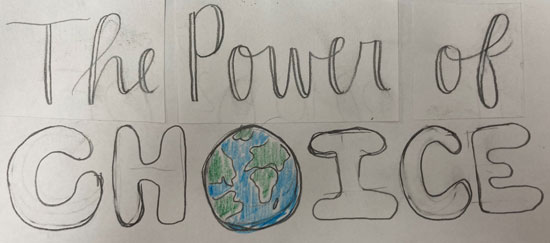 The Power of
CHOICE